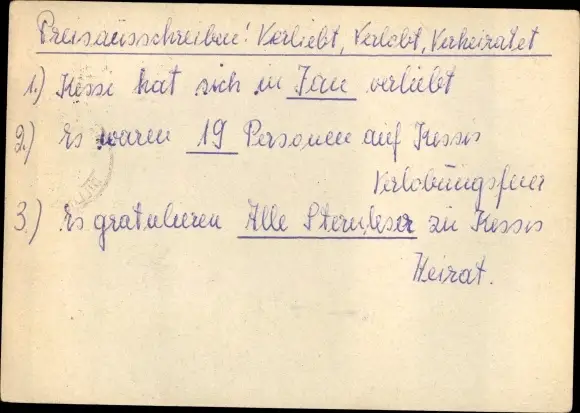 Preisausschreiben: Verliebt, Verlobt, Verheiratet
1.) Kessi hat sich in Jan verliebt
2.) Es waren 19 Personen auf Kessis
Verlobungsfeier
3.) Es gratulieren Alle Sternleser zu Kessis
Heirat.